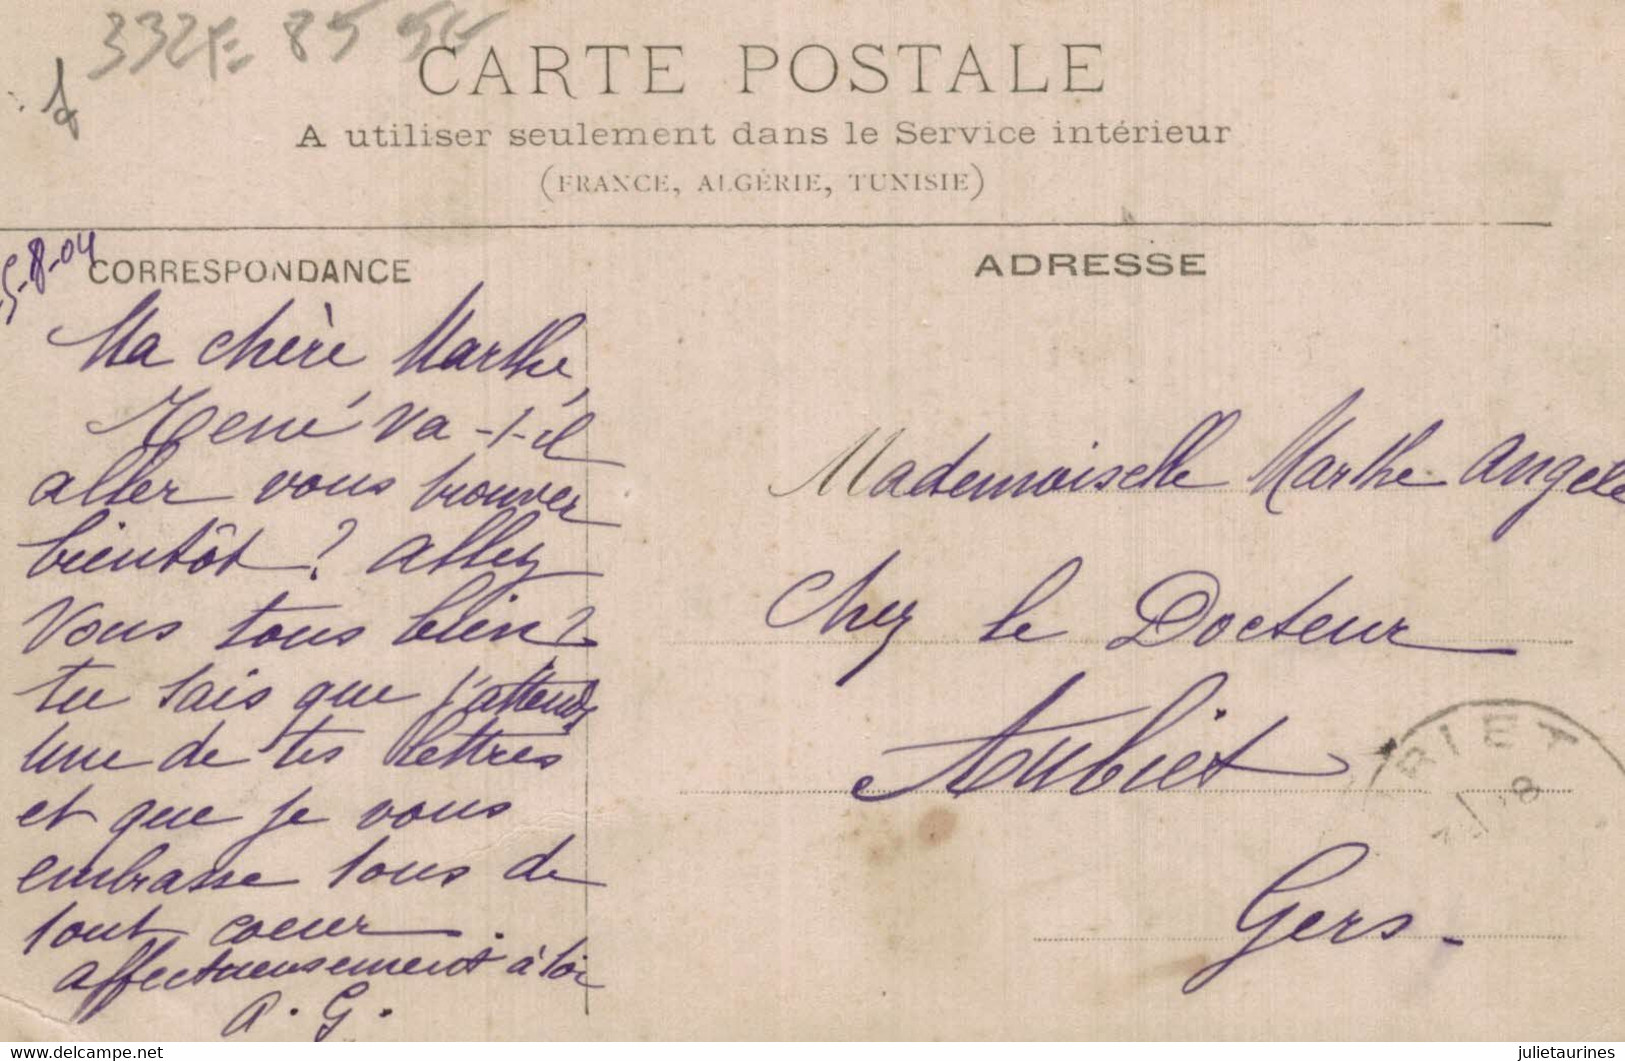 332F= 85 5E
CARTE POSTALE
A utiliser seulement dans le Service intérieur
(FRANCE, ALGÉRIE, TUNISIE)
5-8-04
CORRESPONDANCE
Ma chère Marthe,
René va-t-il
aller vous trouver
bientôt? allez
vous tous bien?
tu sais que j'attends
une de tes lettres
et que je vous
embrasse tous de
tout coeur.
affectueusement à toi
A. G.
ADRESSE
Mademoiselle Marthe Angele
Chez le Docteur
Aubiet
Gers.
BIET
8
www.delcampe.net
julietaurines